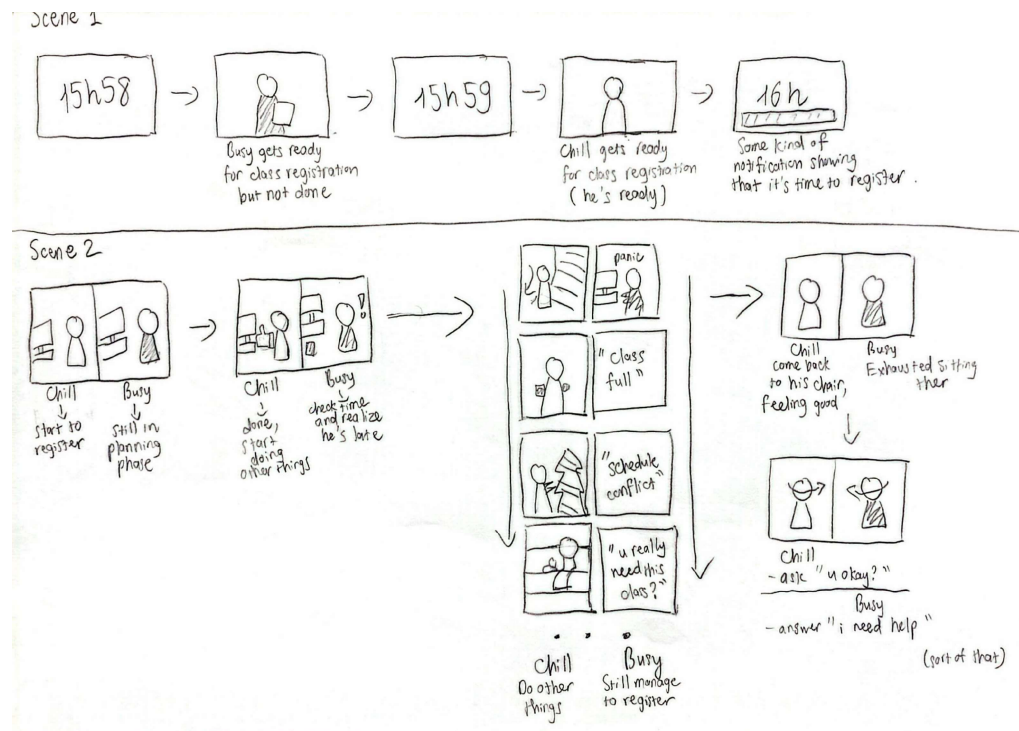 Scene 1
15h58
Busy gets ready
for class registration
but not done
15h59
Chill gets ready
for class registration
(he's ready)
16h
Some kind of
notification showing
that it's time to register.
Scene 2
Chill
start to
register
Busy
still in
planning
phase
Chill
done,
start
doing
other things
Busy
check time
and realize
he's late
!
panic
"class
full"
"schedule
conflict"
"u really
need this
class?"
...
Chill
Do other
things
Busy
Still manage
to register
Chill
come back
to his chair,
feeling good
Busy
Exhausted sitting
ther
Chill
- ask "u okay?"
Busy
- answer "i need help"
(sort of that)